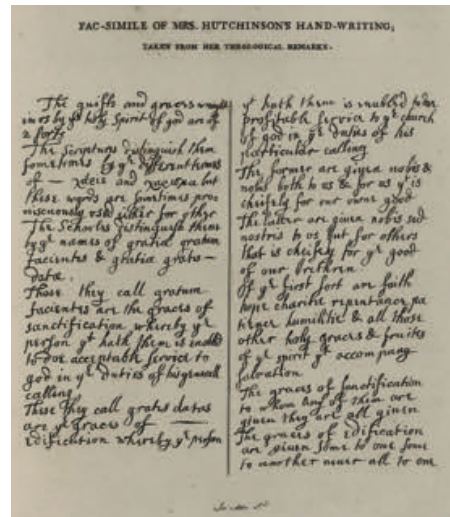 FAC-SIMILE OF MRS. HUTCHINSON'S HAND-WRITING;
TAKEN FROM HER THEOLOGICAL REMARKS.
The guifts and graces
in us by yt holy Spirit of god are of
2 sorts
The Scriptures distinguish them
sometimes by ye different names
of — and but
these words are somtimes pro
miscuously used either for other
The Schooles distinguish them
by ye names of gratia gratum
facientes & gratia gratis —
datæ.
Those they call gratum
facientes are the graces of
sanctification whereby ye
person yt hath them is enabled
to doe acceptable service to
god in ye duties of his generall
calling
These they call gratis datas
are ye graces of —
edification whereby ye person
yt hath them is enabled to doe
profitable service to ye church
of god in ye duties of his
particular calling
The former are given nobis &
nobis both to us & for us yt is
cheifely for our owne good
The latter are given nobis sed
nostris to us but for others
that is cheifly for ye good
of our brethren
Of ye first sort are faith
hope charitie repentance pa
tience humilitie & all those
other holy graces & fruites
of ye spirit yt accompany
salvation
The graces of sanctification
to whom any of them are
given they are all given
The graces of edification
are given some to one some
to another never all to one